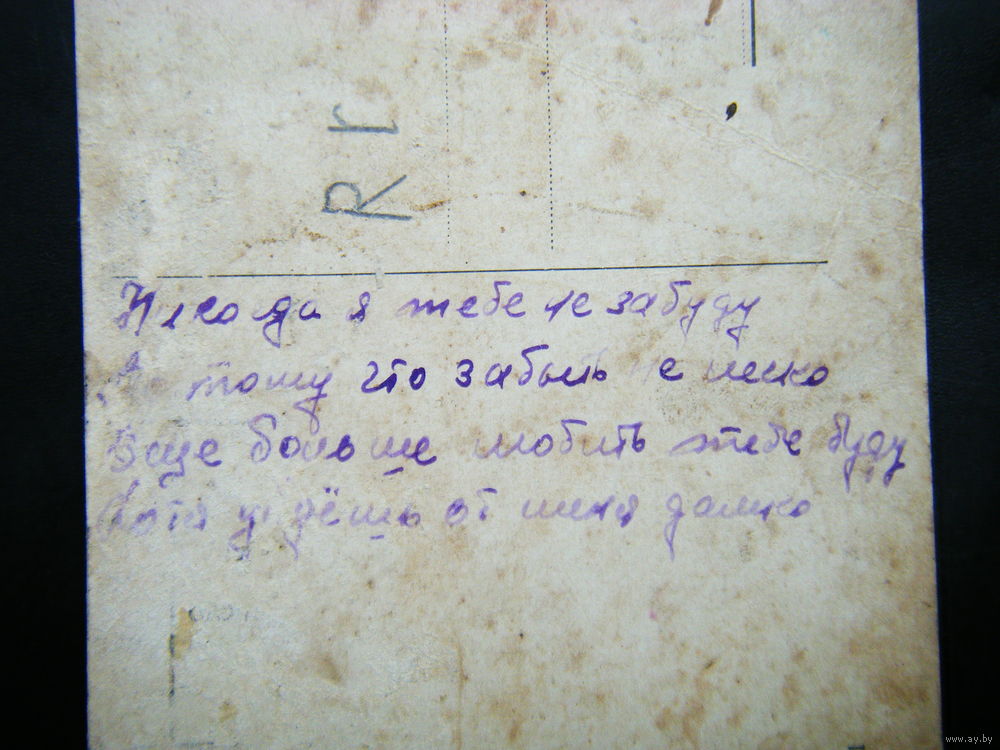 R r
Никогда я тебе не забуду
тому что забыть не легко
Еще больше любить тебе буду
Хотя уйдёшь от меня далико
www.ay.by